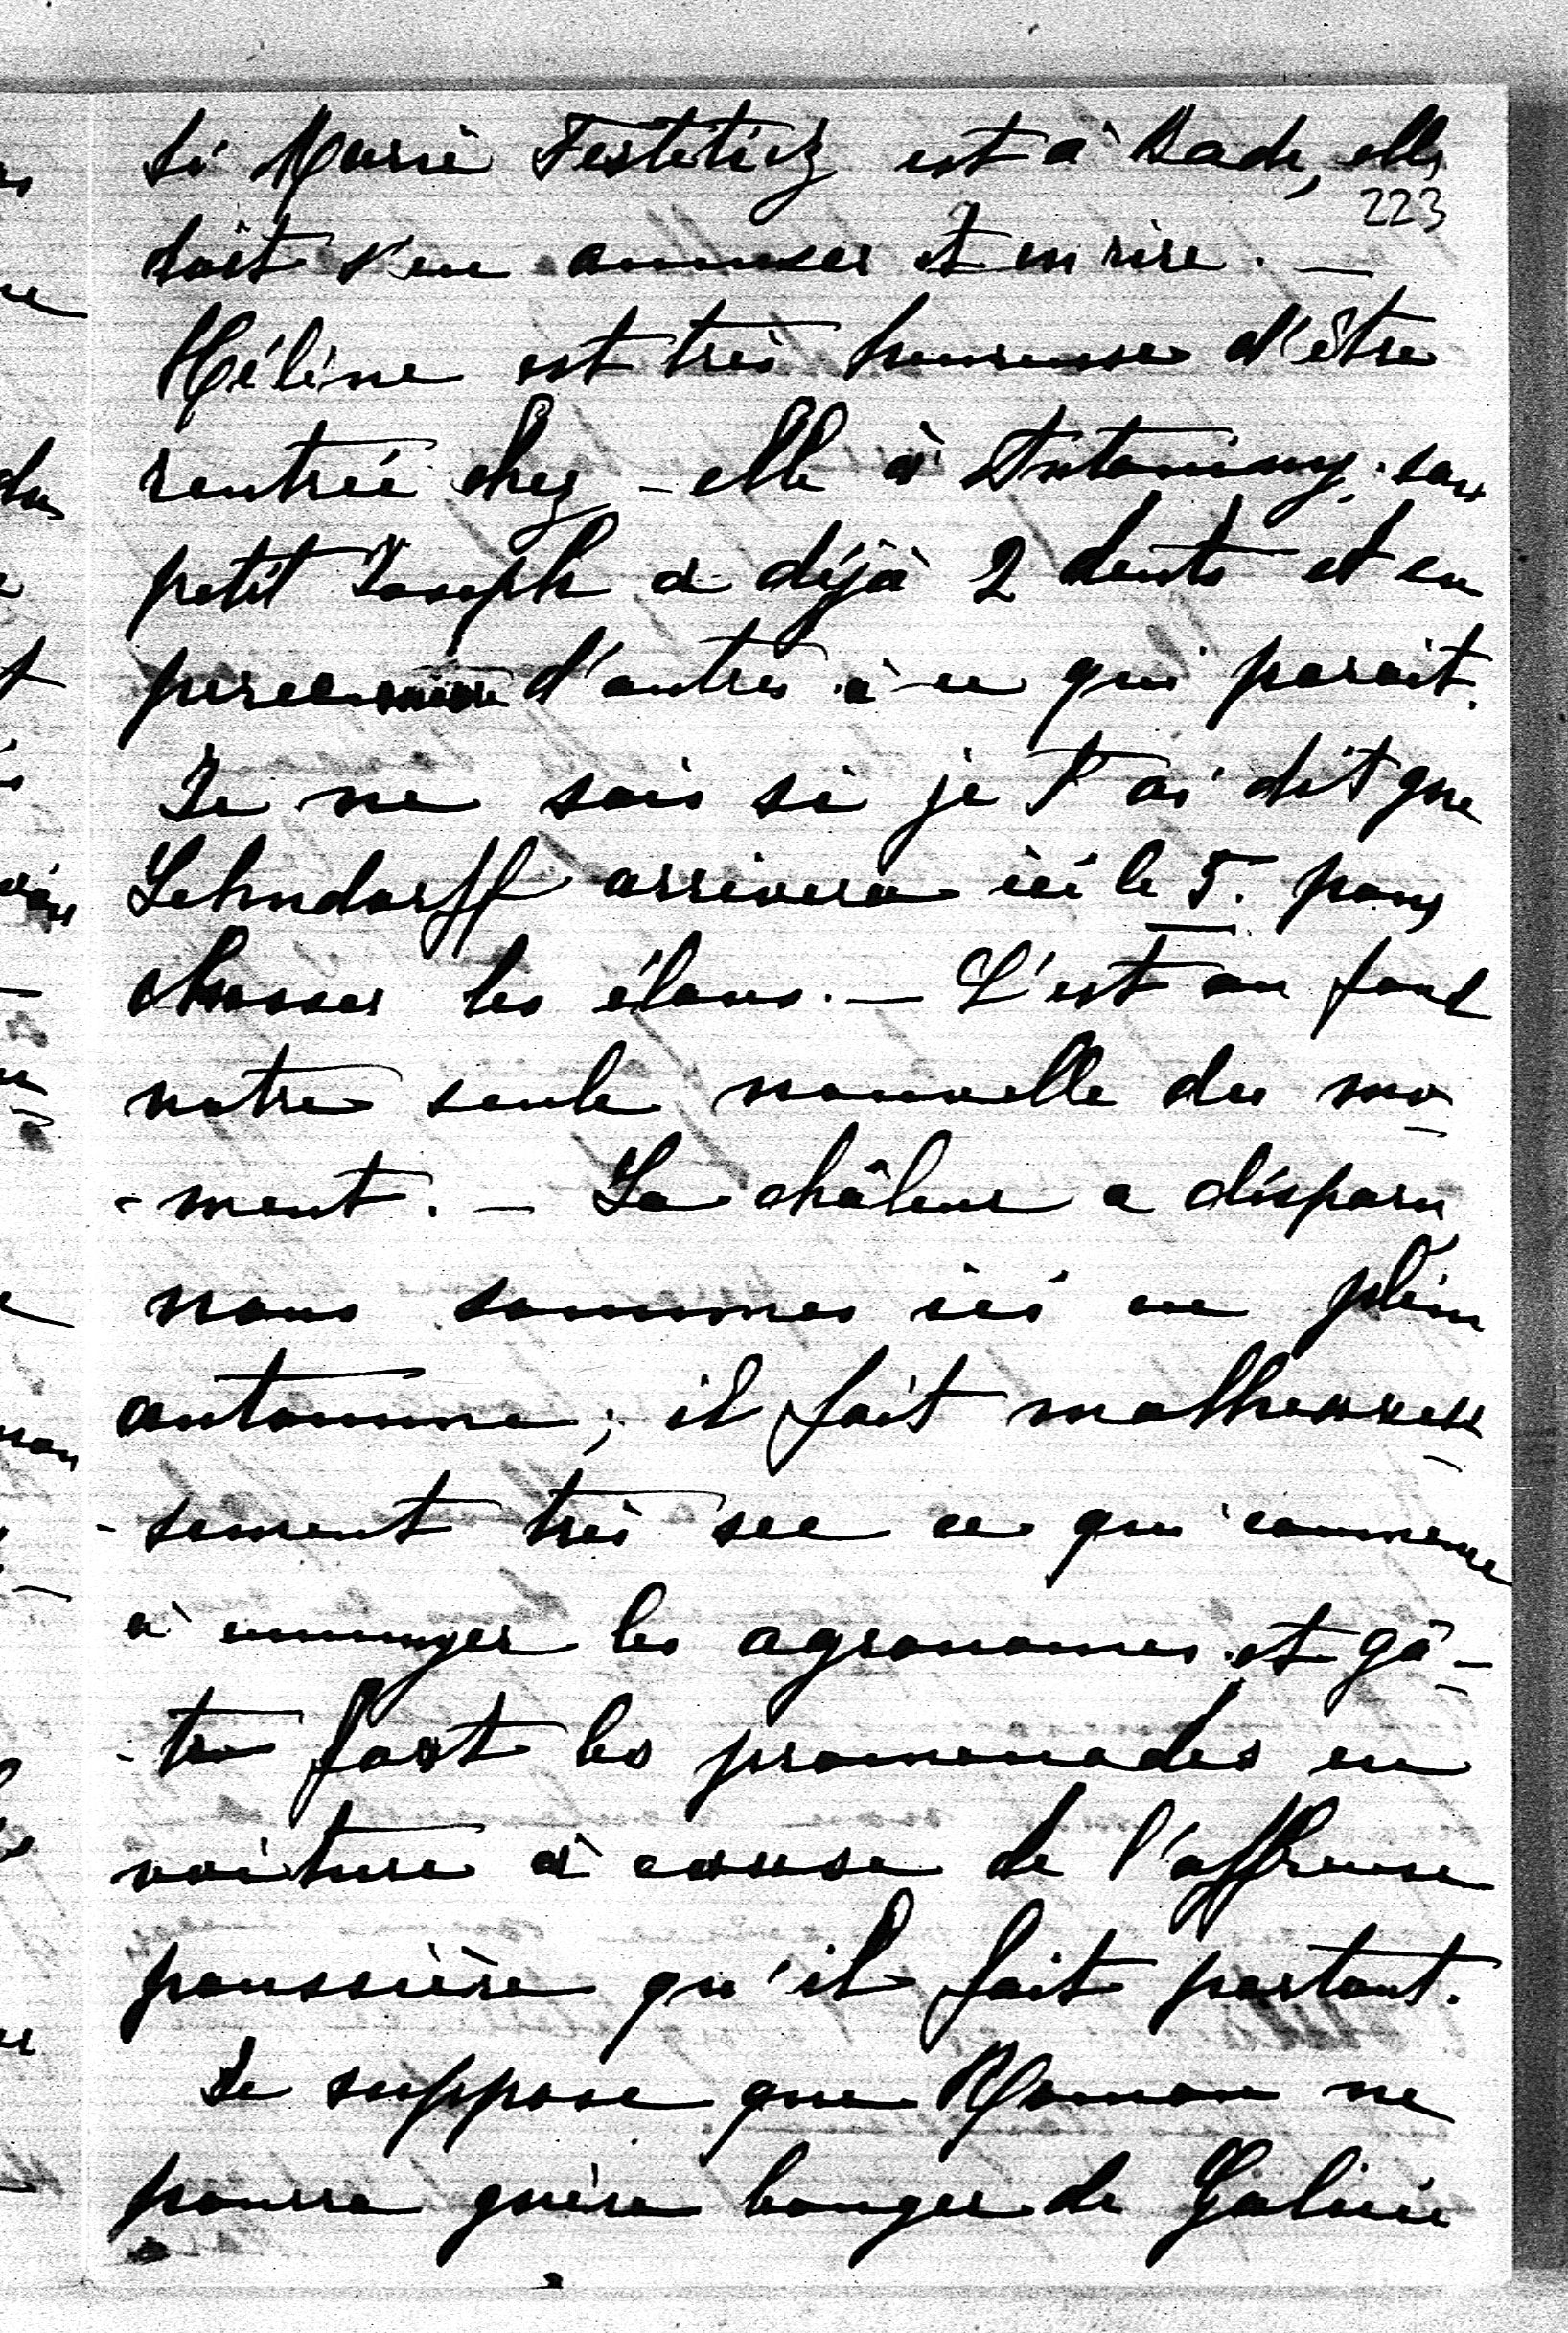 Si Marie Festeticz est à Bade, elle
223
doit s'en amuser et en rire. —
Hélène est très heureuse d'être
rentrée chez-elle à Antoniny; son
petit Joseph a déjà 2 dents et en
d'autres à ce qui parait.
Je ne sais si je t'ai dit que
Lehndorff arrivera ici le 5. pour
chasser les élans. — C'est au fond
notre seule nouvelle du mo-
-ment. — La châleur a disparu,
nous sommes ici en plein
automne; il fait malheureu-
-sement très sec ce qui commence
à ennuyer les agronomes et gâ-
-te fort les promenades en
voiture à cause de l'affreuse
poussière qu'il fait partout.
Je suppose que Roman ne
pourra guère bouger de Galicie